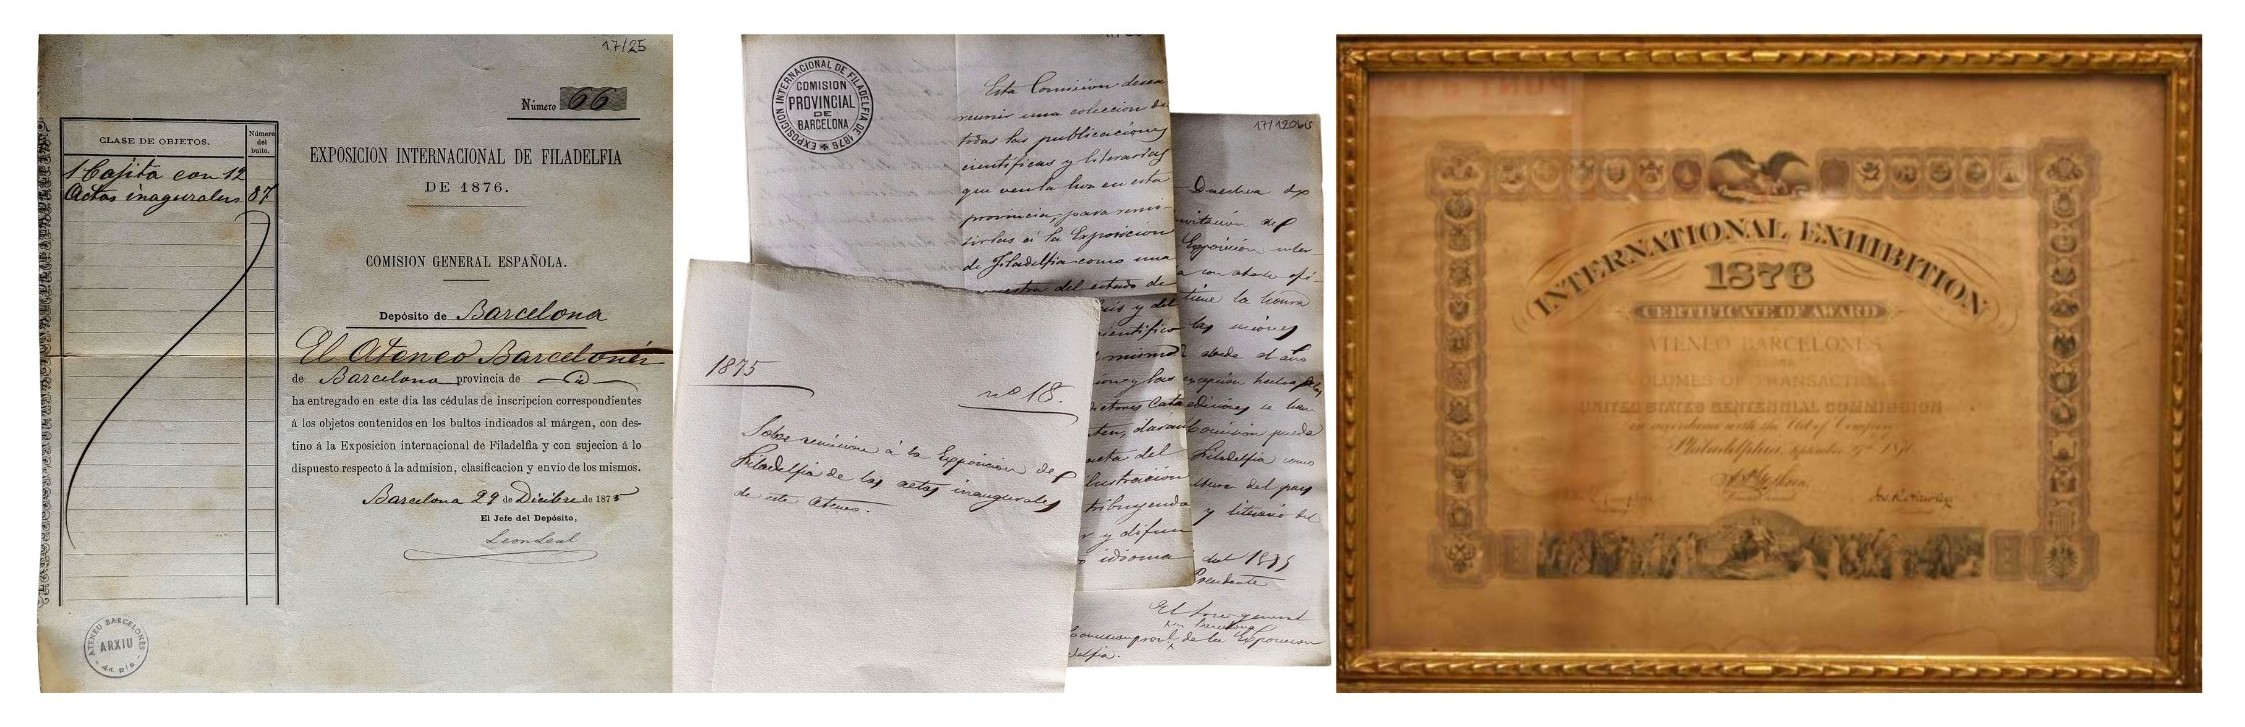 17/25
Número 66
CLASE DE OBJETOS.
Número del bulto.
1 Cajita con 12
Actas inagurales 87
EXPOSICION INTERNACIONAL DE FILADELFIA
DE 1876.
COMISION GENERAL ESPAÑOLA.
Depósito de Barcelona
El Ateneo Barcelonés
de Barcelona provincia de id
ha entregado en este dia las cédulas de inscripcion correspondientes
á los objetos contenidos en los bultos indicados al márgen, con des-
tino á la Exposicion internacional de Filadelfia y con sujecion á lo
dispuesto respecto á la admision, clasificacion y envio de los mismos.
Barcelona 29 de Dicibre de 1875
El Jefe del Depósito,
Leon Leal
ATENEU BARCELONÈS
ARXIU
EXPOSICION INTERNACIONAL DE FILADELFIA DE 1876
COMISION
PROVINCIAL
DE
BARCELONA
Esta Comision desea
reunir una coleccion de
todas las publicaciones
cientificas y literarias
que ven la luz en esta
provincia, para remi-
tirlas á la Exposicion
de Filadelfia como una
muestra del estado de
y del
cientifico
mismo
Cata
del
ilustracion
tribuyendo
y difun
idioma
17/12066
invitación del
Exposición inter-
tiene la honra
las
desde el año
excepción hecha
ediciones se han
Comisión pueda
Filadelfia como
del pais
y literario del
1875
Presidente
El
general
en Barcelona
Comision provl de la Exposicion
delfia.
1875
nº 18.
Sobre remision á la Exposicion de
Filadelfia de las actas inaugurales
de este Ateneo.
INTERNATIONAL EXHIBITION
1876
CERTIFICATE OF AWARD
ATENEO BARCELONES
VOLUMES OF TRANSACTIONS
UNITED STATES CENTENNIAL COMMISSION
in accordance with the Act of Congress
Philadelphia, September 27th 1876